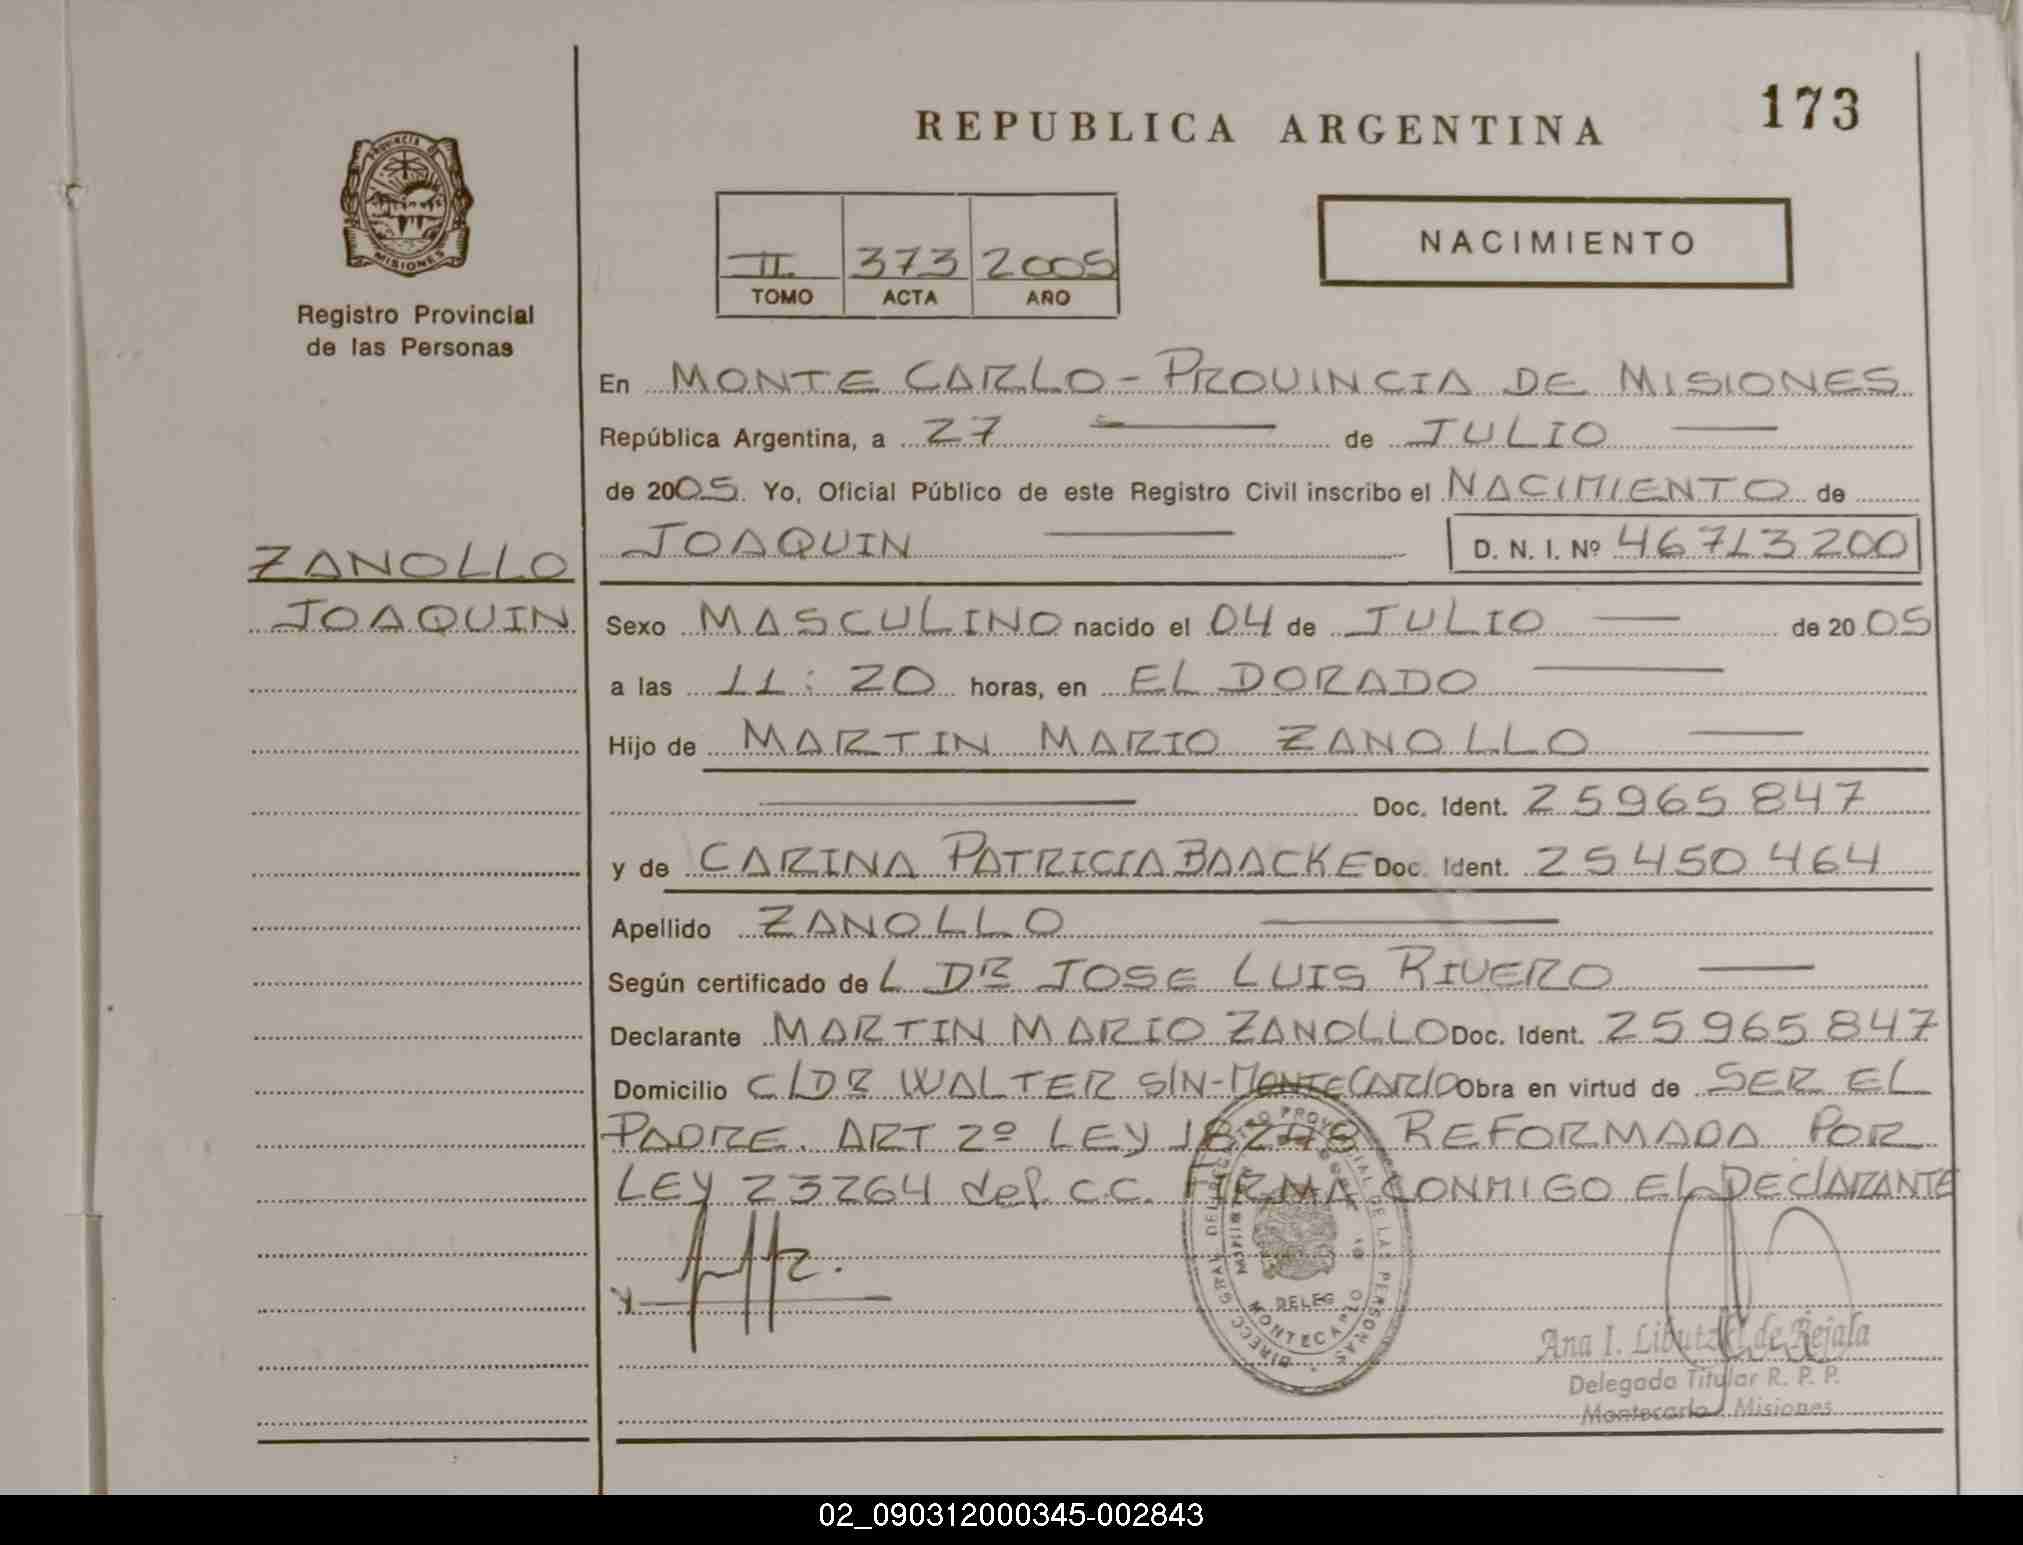 REPUBLICA ARGENTINA
173
PROVINCIA DE
MISIONES
Registro Provincial
de las Personas
II 373 2005
TOMO ACTA AÑO
NACIMIENTO
En MONTE CARLO - PROVINCIA DE MISIONES
República Argentina, a 27 de JULIO
de 2005. Yo, Oficial Público de este Registro Civil inscribo el NACIMIENTO de
JOAQUIN D. N. I. Nº 46713200
ZANOLLO
JOAQUIN
Sexo MASCULINO nacido el 04 de JULIO de 2005
a las 11:20 horas, en EL DORADO
Hijo de MARTIN MARIO ZANOLLO
Doc. Ident. 25965847
y de CARINA PATRICIA BAACKE Doc. Ident. 25450464
Apellido ZANOLLO
Según certificado de L DR JOSE LUIS RIVERO
Declarante MARTIN MARIO ZANOLLO Doc. Ident. 25965847
Domicilio C/DR WALTER S/N-MONTECARLO Obra en virtud de SER EL
PADRE. ART 2º LEY 18248 REFORMADA POR
LEY 23264 del C.C. FIRMA CONMIGO EL DECLARANTE
DELEG
MONTECARLO
Ana I. de Rejala
Delegada Titular R. P. P.
Montecarlo Misiones
02_090312000345-002843